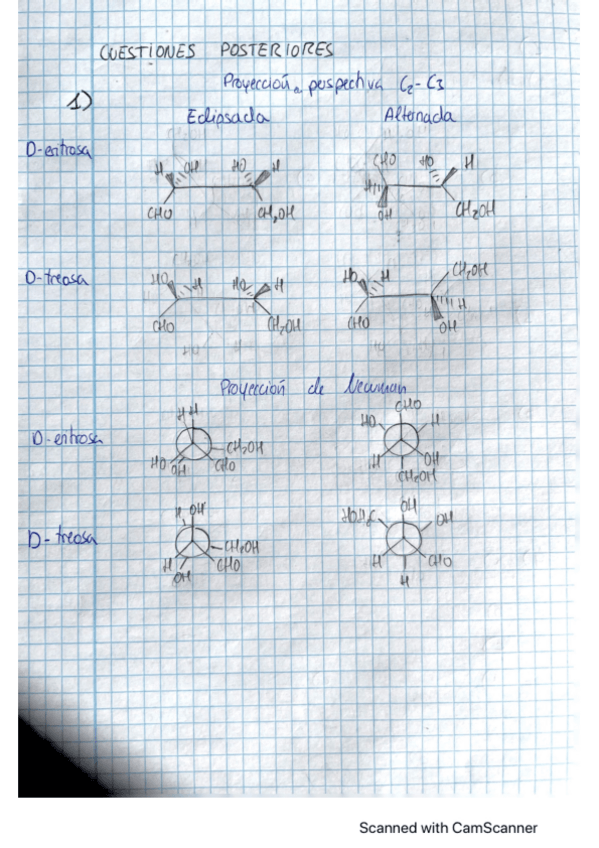 CUESTIONES POSTERIORES
1) Proyección perspectiva C2-C3
Eclipsada Alternada
D-eritrosa
H OH HO H CHO HO H
CHO CH2OH H OH CH2OH
D-treosa
HO H HO H HO H CH2OH
CHO CH2OH CHO H OH
Proyección de Newman
D-eritrosa
H H CHO
HO H
CH2OH
HO OH CHO H OH
CH2OH
D-treosa
H OH OH
HOH2C OH
CH2OH
H CHO H CHO
OH H
Scanned with CamScanner